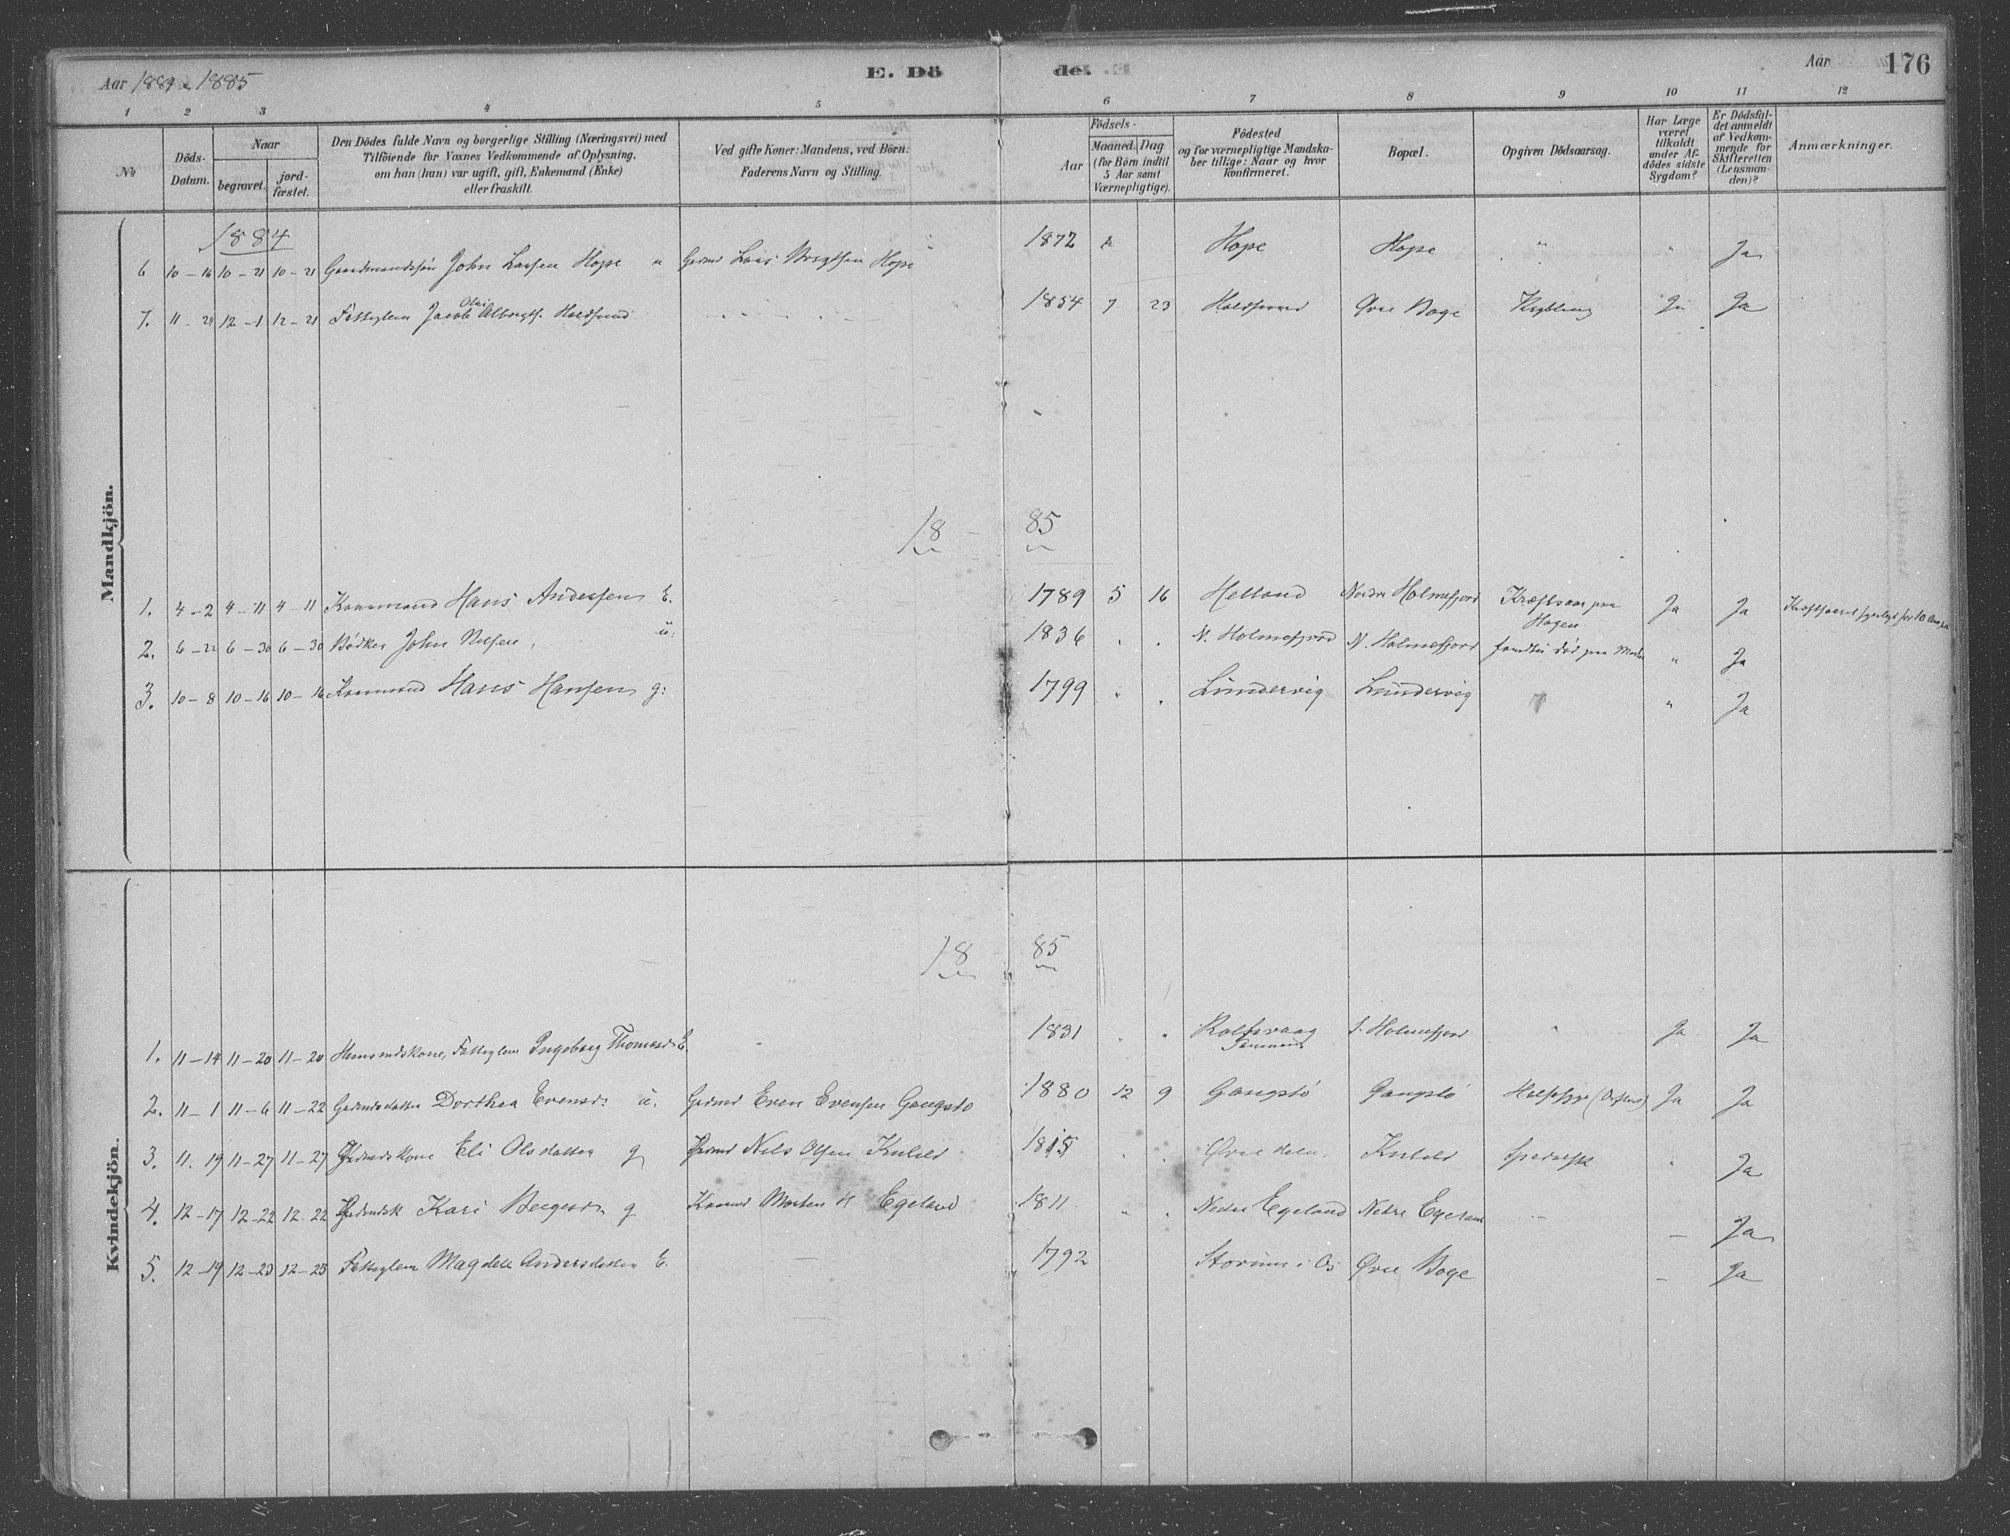 Aar 1884 & 1885 E. Dö de. Aar 176
1 2 3 4 5 6 7 8 9 10 11 12
No
Döds-Datum.
Naar
begravet.
jord-fæstet.
Den Dödes fulde Navn og borgerlige Stilling (Næringsvei) med
Tilföiende for Voxnes Vedkommende af Oplysning,
om han (hun) var ugift, gift, Enkemand (Enke)
eller fraskilt.
Ved gifte Koner: Mandens, ved Börn:
Faderens Navn og Stilling.
Födsels-
Aar
Maaned. Dag
(for Börn indtil
5 Aar samt
Værnepligtige).
Födested
og for værnepligtige Mandska-
ber tillige: Naar og hvor
konfirmeret.
Bopæl.
Opgiven Dödsaarsag.
Har Læge
været
tilkaldt
under Af-
dödes sidste
Sygdom?
Er Dödsfal-
det anmeldt
af Vedkom-
mende for
Skifteretten
(Lensman-
den)?
Anmærkninger.
Mandkjön.
1884
6 10-14 10-21 10-21 Gaardmandssøn John Larsen Hope u Grdmd Lars Hope 1872 Hope Hope " " Ja
7. 11-24 12-1 12-21 Fattiglem Jacob Olai Albregts. Holdsund 1854 7 23 Holdsund Øvre Boge Ja Ja
18 85
1. 4-2 4-11 4-11 Kaarmand Hans Andersen E. 1789 5 16 Helland Nordre Holmefjord Kræftsaar paa Hagen Ja Ja
2. 6-22 6-30 6-30 Bødker John Nilsen, u: 1836 " . N. Holmefjord N. Holmefjord fandtes død paa " Ja
3. 10-8 10-16 10-16 Kaarmand Hans Hansen g: 1799 " . Lundervig Lundervig " Ja
Kvindekjön.
18 85
1. 11-14 11-20 11-20 Husmdskone, Fattiglem Ingeborg Thomasd. E. 1831 . " Rolfsvaag S. Holmefjord " Ja Ja
2. 11-1 11-6 11-22 Grdmdsdatter Dorthea Evensd: u. Grdmd Even Evensen Gangstø 1880 12 9 Gangstø Gangstø Ja Ja
3. 11. 19 11-27 11-27 Grdmdskone Eli Olsdatter g Grdmd Nils Olsen Kuleld 1815 . . Øvre Kuleld Spedalsk " Ja
4. 12-17 12-22 12 22 Kari g Morten Egeland 1811 " . Nedre Egeland Nedre Egeland - Ja
5. 12-19 12-23 12-23 Fattiglem Magdele Andersdatter E. 1792 Storum i Os Øvre Boge - Ja